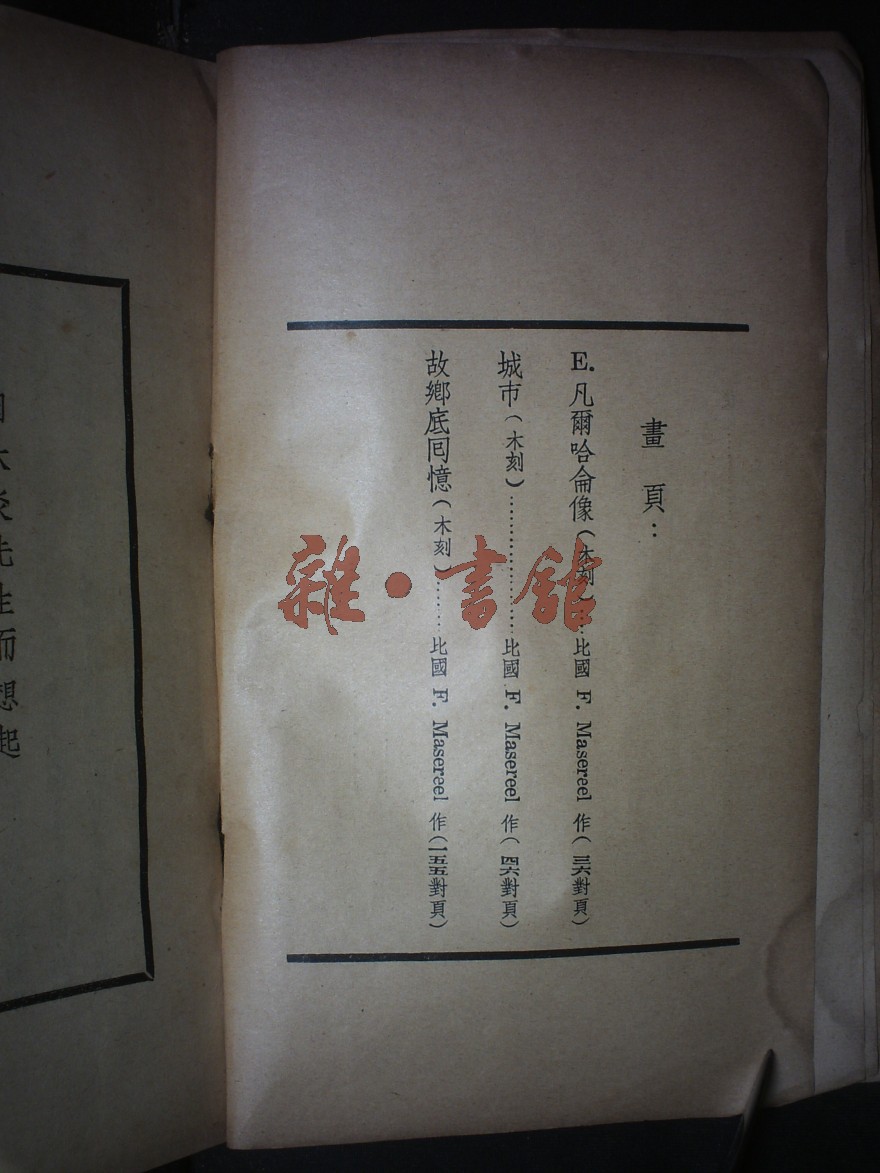 畫頁：
E. 凡爾哈侖像(木刻)……比國 F. Masereel 作(三六對頁)
城市(木刻)…………………比國 F. Masereel 作(四六對頁)
故鄉底囘憶(木刻)……比國 F. Masereel 作(一五五對頁)
先生而想起
雜·書館